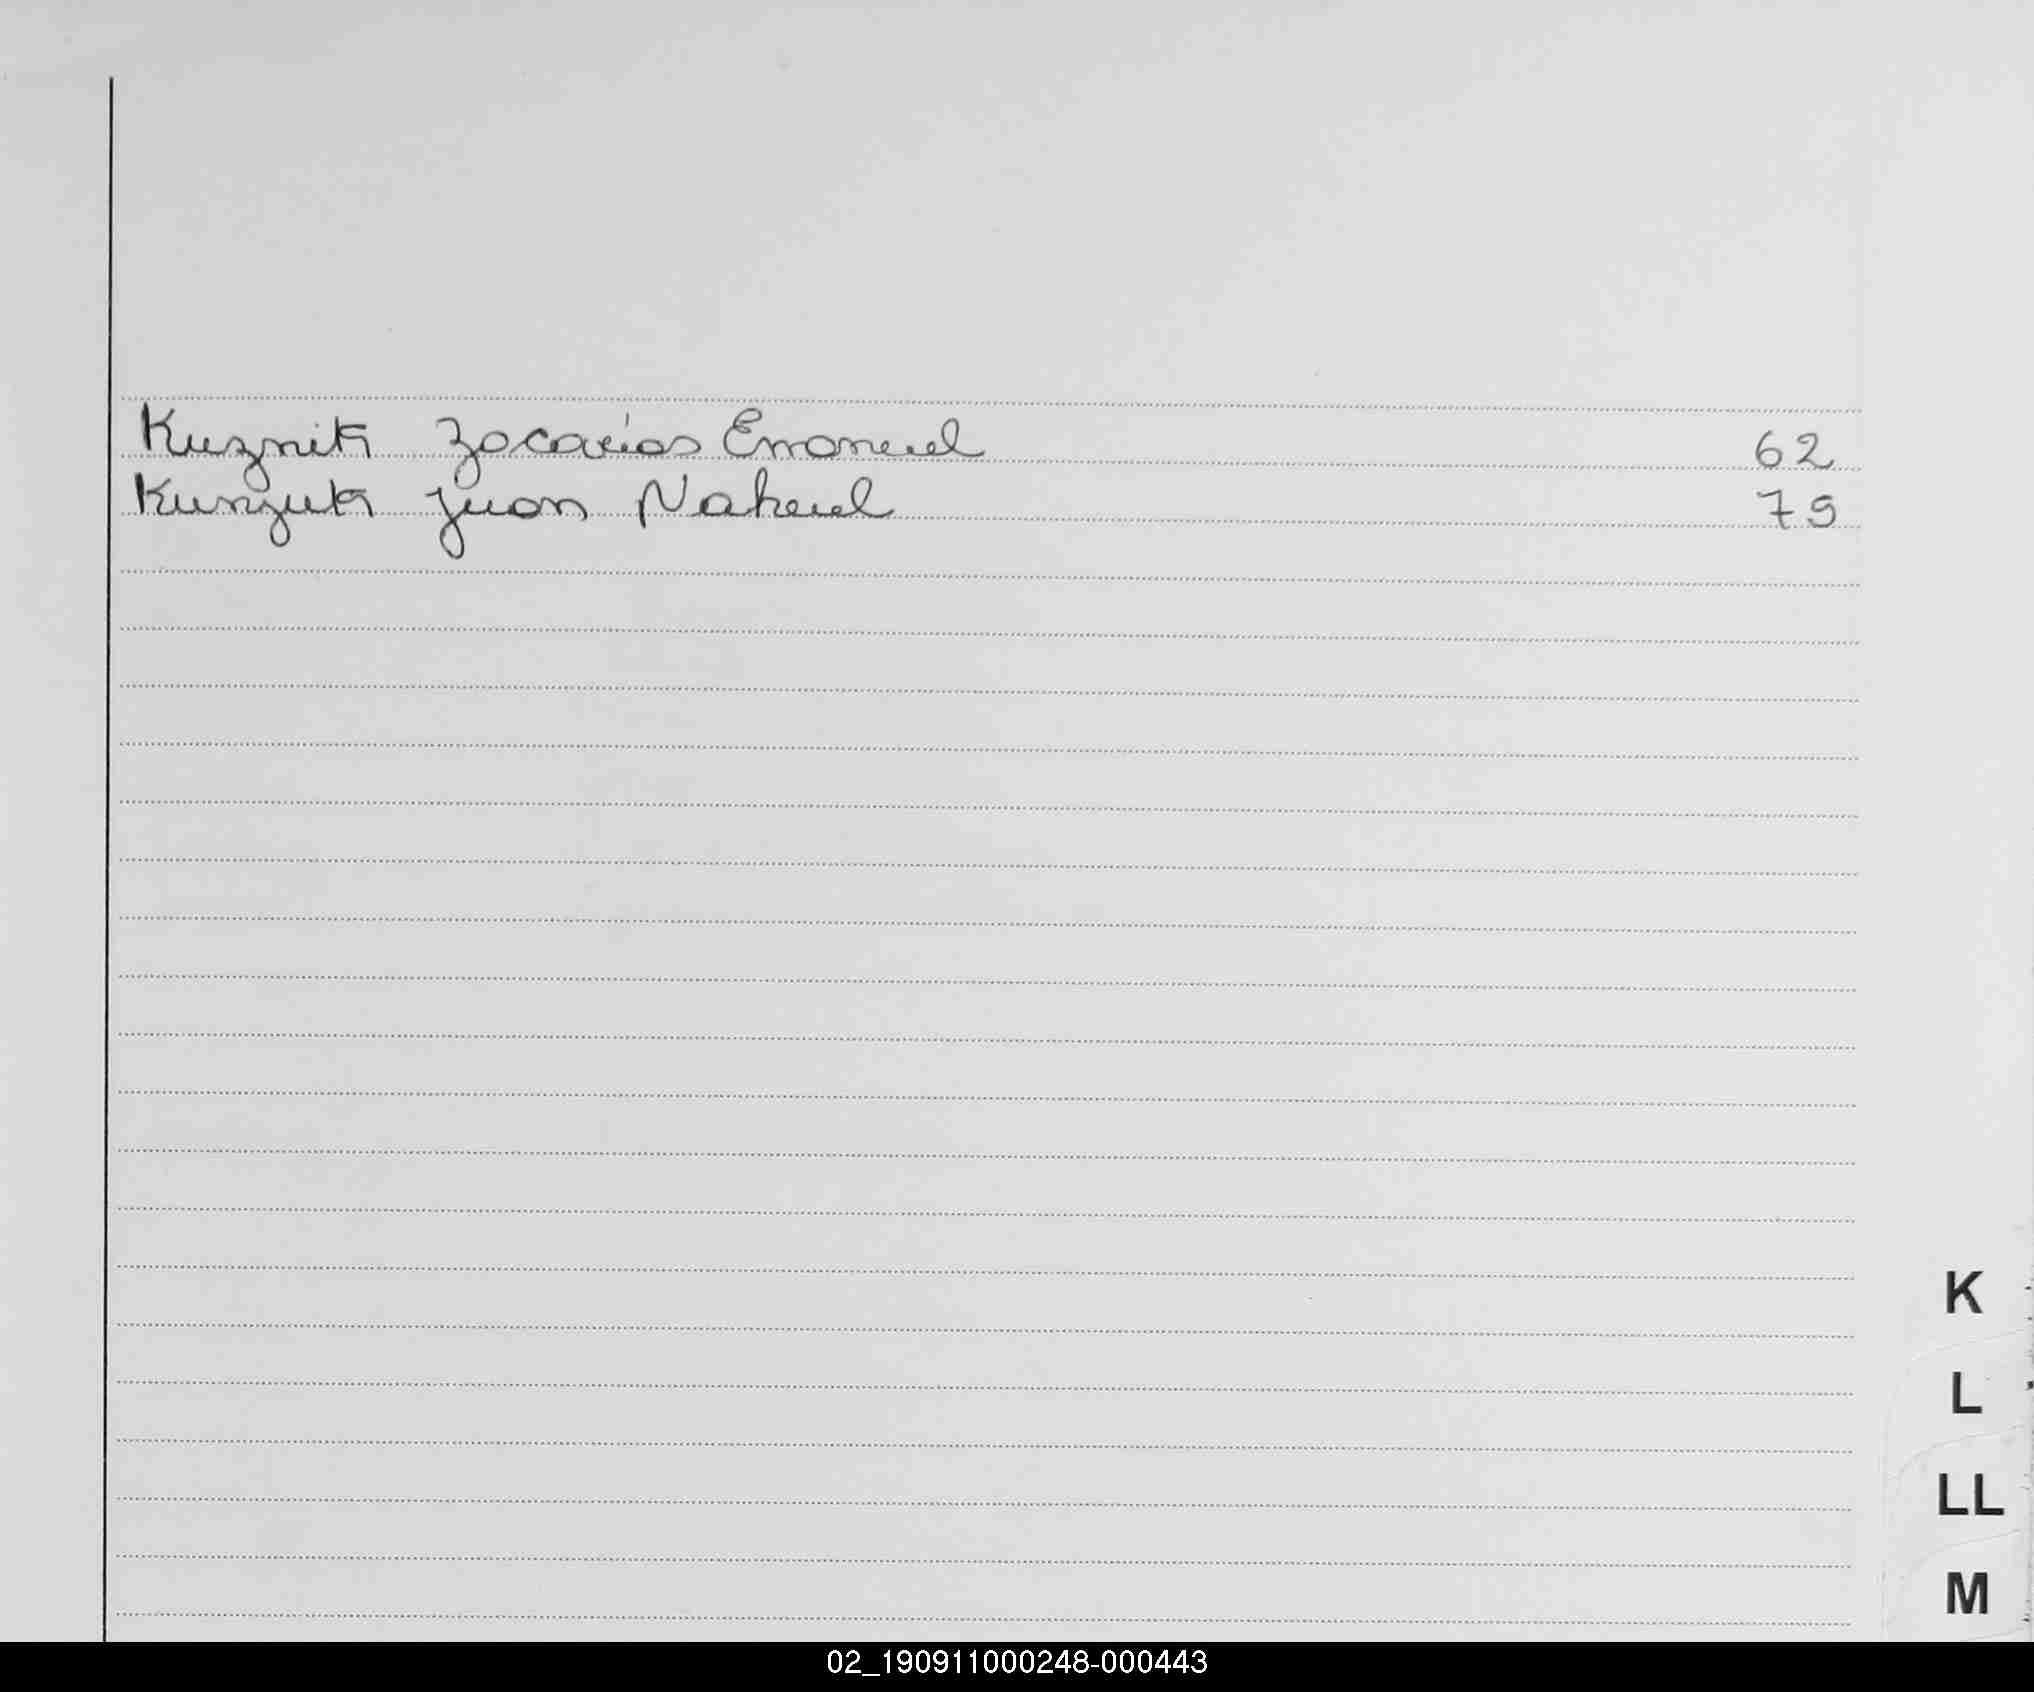 Kuznitz Zacarías Emanuel 62
Kunzutz Juan Nahuel 75
K
L
LL
M
02_190911000248-000443